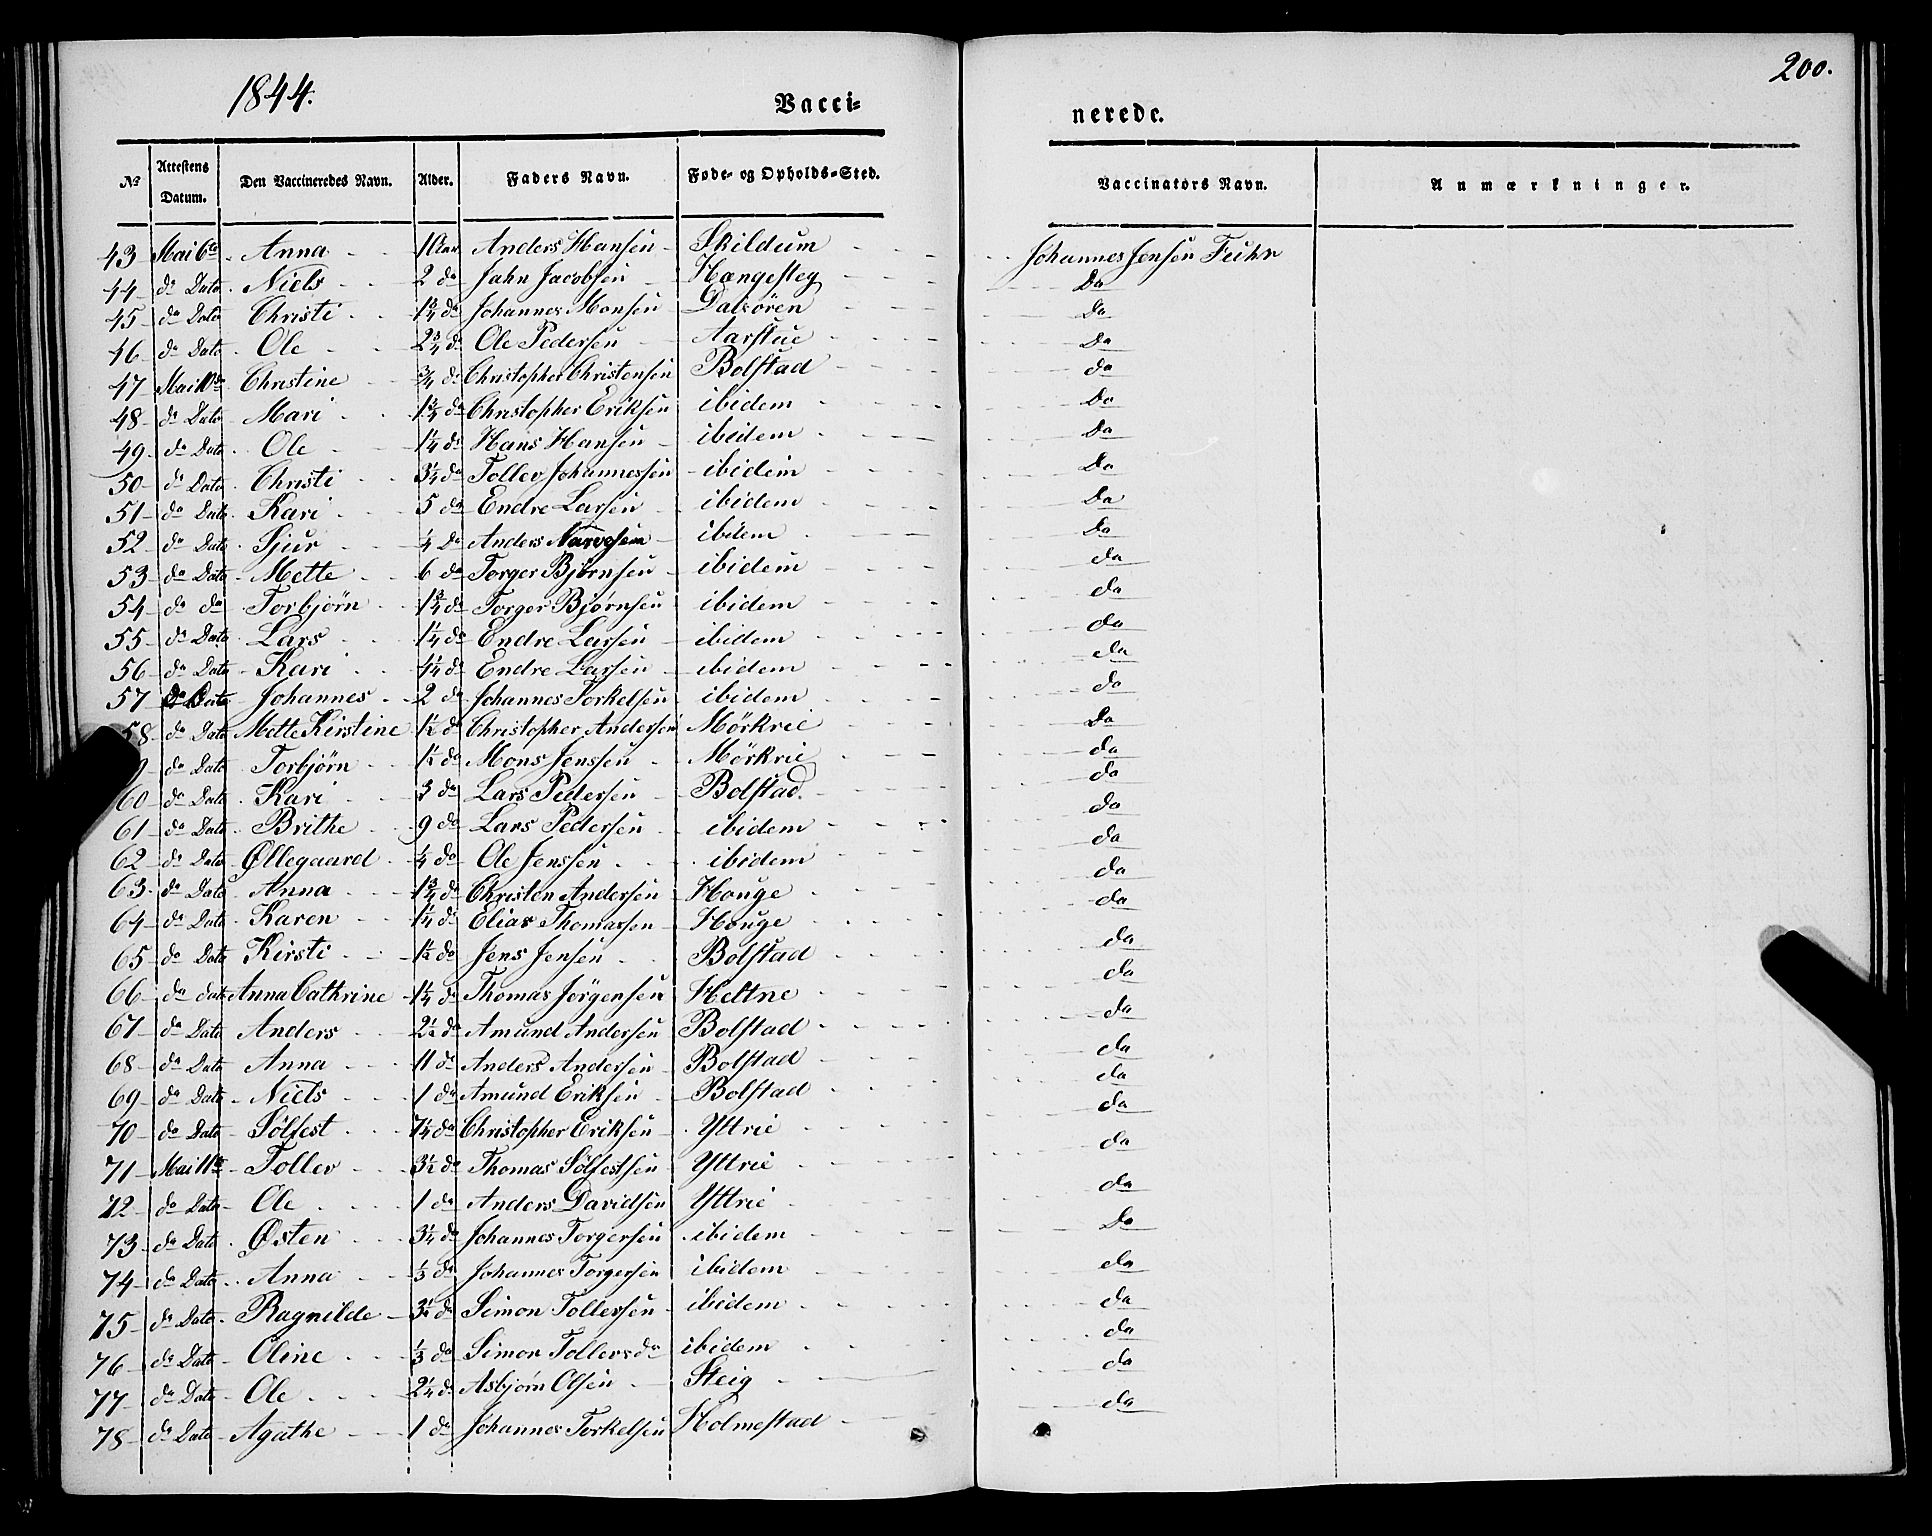 1844.
Vacci=
nerede.
200.
No Attestens Datum. Den Vaccineredes Navn. Alder. Faders Navn. Føde- og Opholds-Sted. Vaccinators Navn. Anmærkninger.
43 Mai 6te Anna 1 Aar Anders Hansen Skildum Johannes Jensen Fuhr
44 do Dato Niels 2 do Jahn Jacobsen Hængesteg Do
45 do Dato Christi 1¾ do Johannes Monsen Dalsören Do
46 do Dato Ole 2¾ do Ole Pedersen Aarstue Do
47 Mai 10de Christine ¾ do Christopher Christensen Bolstad do
48 do Dato Mari 1¾ do Christopher Eriksen ibidem Do
49 do Dato Ole 1¼ do Hans Hansen ibidem Do
50 do Dato Christi 3¼ do Tollev Johannessen ibidem Do
51 do Dato Kari 5 do Endre Larsen ibidem Do
52 do Dato Sjur ¼ Do Anders Narvesen ibidem Do
53 do Dato Mette 6 do Torger Bjørnsen ibidem do
54 do do Torbjørn 1¾ do Torger Bjørnsen ibidem do
55 do Dato Lars 1¼ do Endre Larsen ibidem do
56 do Dato Kari 4¼ do Endre Larsen ibidem do
57 do Dato Johannes 2 do Johannes Torkelsen ibidem do
58 do Dato Mette Kirstine 1½ do Christopher Andersen Mörkrie Do
9 do Dato Torbjörn 1½ do Mons Jenssen Mörkrie do
60 do Dato Kari 3 do Lars Pedersen Bolstad. do
61 do Dato Brithe 9 do Lars Pedersen ibidem do
62 do Dato Øllegaard ¼ do Ole Jenssen ibidem do
63 do Dato Anna 1¾ do Christen Andersen Houge do
64 do Dato Karen 1¼ do Elias Thomassen Houge do
65 do Dato Kirsti 1½ do Jens Jensen Bolstad do
66 do dato Anna Cathrine 1¼ do Thomas Jörgensen Heltne do
67 do Dato Anders 2¼ do Amund Andersen Bolstad do
68 do Dato Anna 11 do Anders Andersen Bolstad do
69 do Dato Niels 1 do Amund Eriksen Bolstad do
70 do Dato Sølfest 7¼ do Christopher Eriksen Yttrie do
71 Mai 11te Tollev 3½ do Thomas Sölfestsen Yttrie do
72 do Dato Ole 1 do Anders Davidsen Yttrie do
73 do Dato Østen 3¼ do Johannes Torgersen ibidem Do
74 do Dato Anna ⅓ do Johannes Torgersen ibidem do
75 do Dato Ragnilde 3½ do Simon Tollevsen ibidem do
76 do Dato Oline ⅓ do Simon Tollevs do ibidem do
77 do Dato Ole 2¼ do Asbjørn Olsen Steig do
78 do Dato Agathe 1 do Johannes Torkelsen Holmestad do